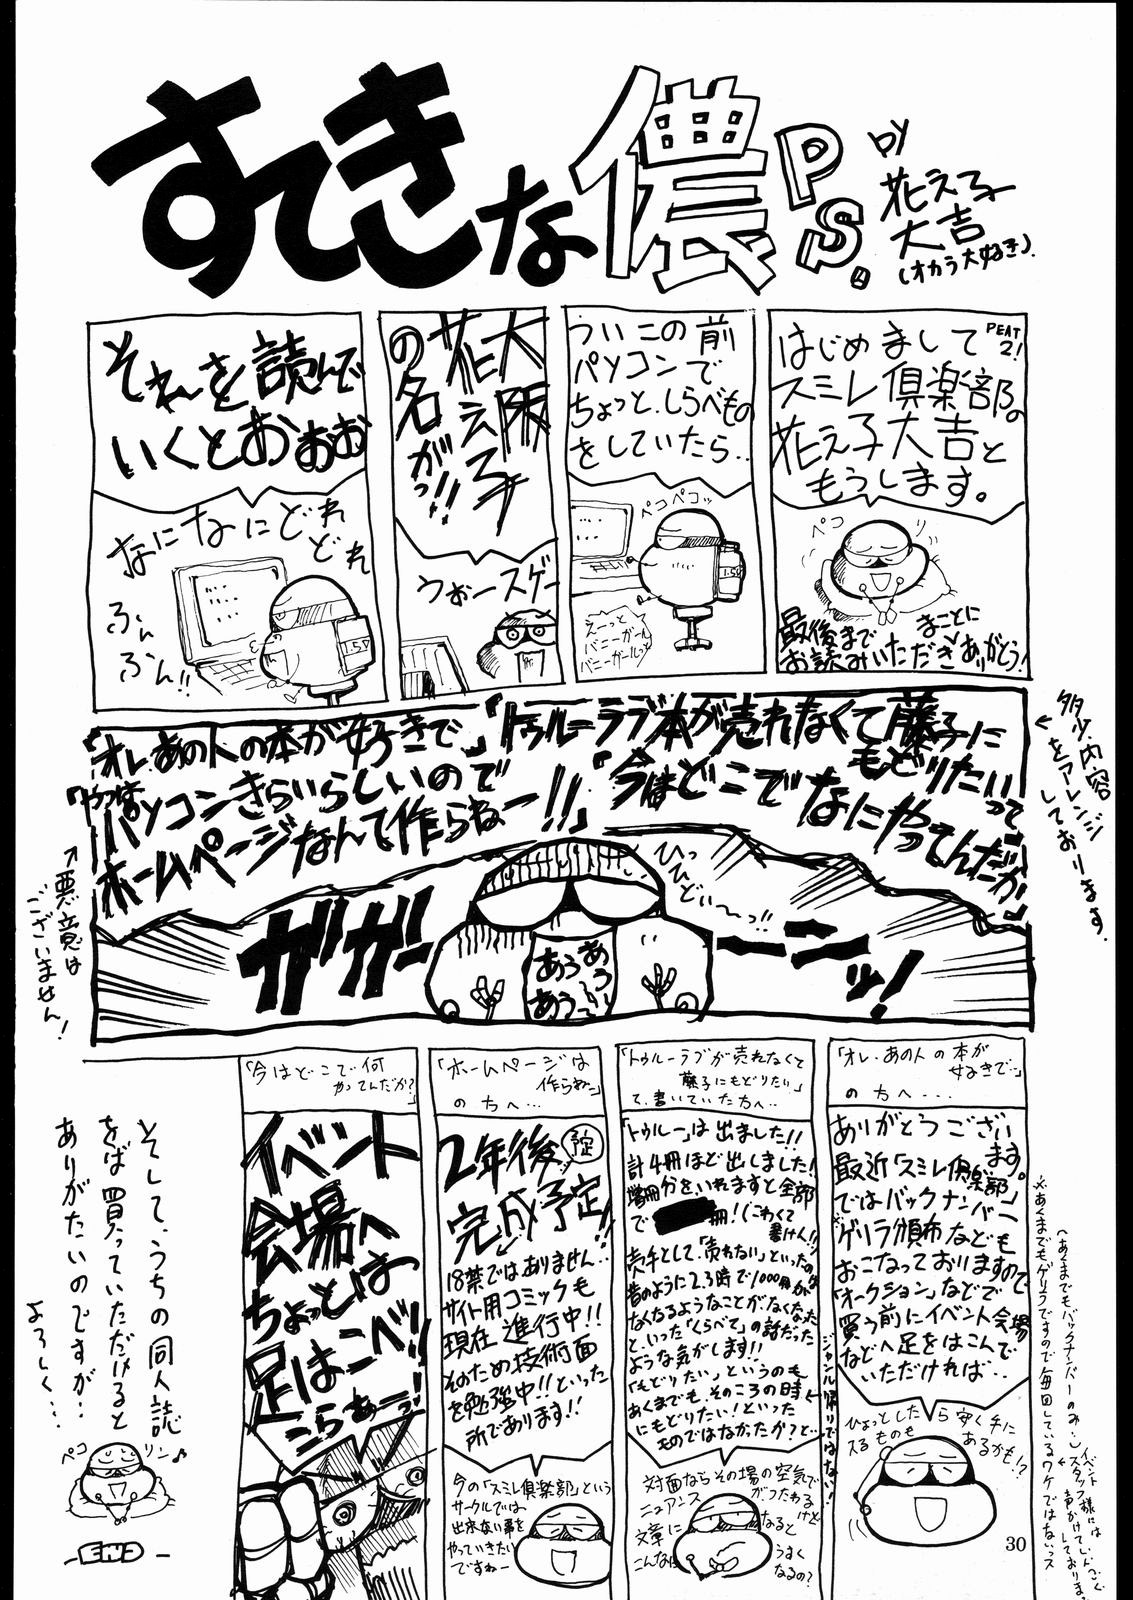 すてきな儂
P.S.
by
花え子
大吉
(オカラ大好き).
PEAT
2!
はじめまして
スミレ倶楽部の
花え子大吉と
もうします。
ペコ
リ
最後まで
まことに
お読みいただきありがとう!
ういこの前
パソコンで
ちょっと、しらべもの
をしていたら..
ペコペコッ
1.5V
えーっと
バニーガール
バニーガールっと
大阪
花え子
の名
がっ!!
うぉースゲー
それを読んで
いくとおぉぉ
なになにどれ
どれ
ふん
ふん!!
1.5V
「トゥルーラブ本が売れなくて藤子に
もどりたいって
「今はどこで
なにやってんだか」
「オレ、あの人の本が好きで」
「やつは
パソコンきらいらしいので
ホームページなんて作らねー!!」
ひっ
ひどい〜っ!!
ガガーーーンッ!
あうあう
あうあう〜
←多少、内容
をアレンジ
しております.
↑悪意は
ございません!
「オレ、あの人の本が
好きで…」
の方へ...
ありがとうござい
ます。
最近「スミレ倶楽部」
ではバックナンバー
※ゲリラ頒布なども
おこなっておりますので
「オークション」などで
買う前にイベント会場
などへ足をはこんで
いただければ..
ひょっとしたら安く手に
入るものも
あるかも!?
「トゥルーラブが売れなくて
藤子にもどりたい」
て、書いていた方へ…
「トゥルー」は出ました!!
計4冊ほど出しました!
増冊分をいれますと全部
で
冊!(こわくて
書けん!!)
売手として「売れない」といったのは
昔のように2.3時で1000冊が
なくなるようなことがなくなった
といった「くらべて」の話だった
ような気がします!!
「もどりたい」というのも
あくまでも、そのころの時←
にもどりたい!といった
ものではなかったか?と…
ジャンル帰りではない!
対面ならその場の空気で
ニュアンス
がつたわる
けど
文章に
なると
うまく
なるの?
「ホームページは
作らねー」
の方へ…
2年後
予定
完成予定!!
18禁ではありません…
サイト用コミックも
現在進行中!!
そのため技術面
を勉強中!!といった
所であります!!
今の「スミレ倶楽部」という
サークルでは
出来ない事を
やっていきたい
ですねー
「今はどこで何
やってんだか?」
イベント
会場へ
ちょっとは
足はこべ!!
こらあーっ!
そして、うちの同人誌
をば買っていただけると
ありがたいのですが…
よろしく…
ペコ
リン♪
-END-
※あくまでもゲリラですので毎回しているワケではないっス
(あくまでもバックナンバーのみ…)
30